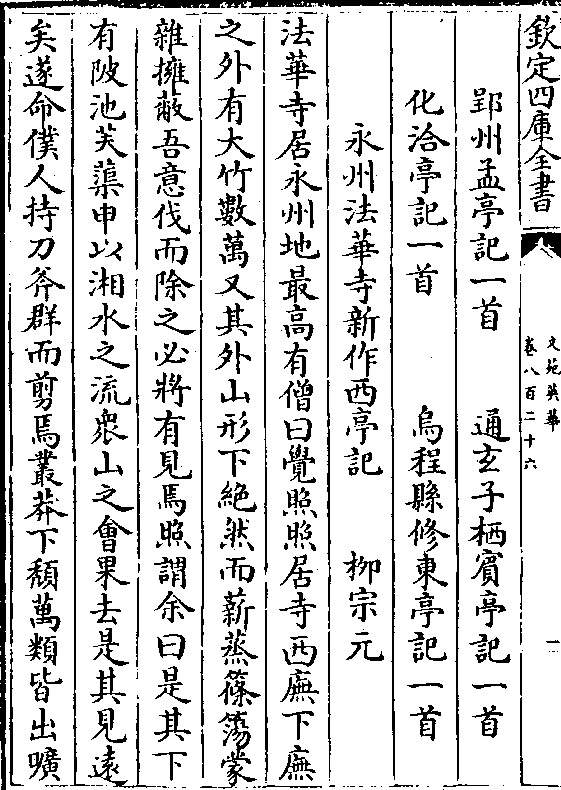 欽定四庫全書
文苑英華
卷八百二十六
一
郢州孟亭記一首　通玄子栖賓亭記一首
化洽亭記一首　烏程縣修東亭記一首
永州法華寺新作西亭記　柳宗元
法華寺居永州地最高有僧曰覺照照居寺西廡下廡
之外有大竹數萬又其外山形下絶然而薪蒸篠簜蒙
雜擁蔽吾意伐而除之必將有見焉照謂余曰是其下
有陂池芙蕖申以湘水之流衆山之會果去是其見遠
矣遂命僕人持刀斧群而剪焉叢莽下頹萬類皆出曠